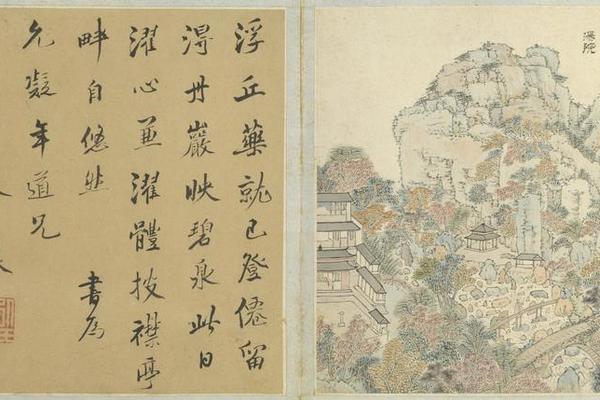 湯院
浮丘藥就已登僊留
淂丹巖映碧泉此日
濯心兼濯體披襟亭
畔自悠然 書為
允凝年道兄